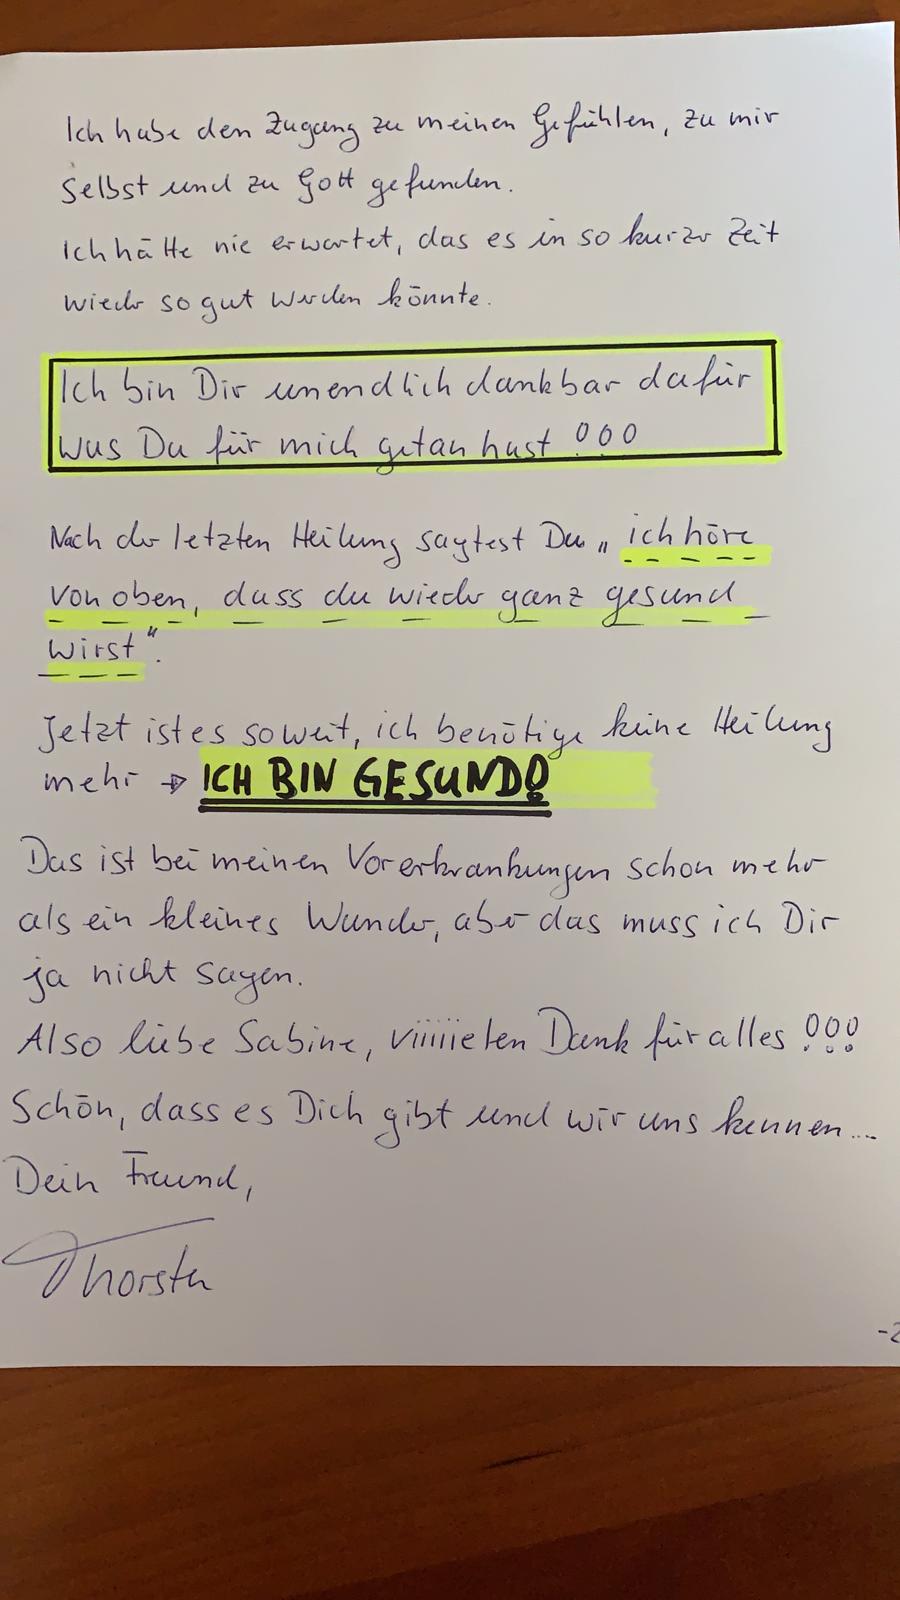 Ich habe den Zugang zu meinen Gefühlen, zu mir
selbst und zu Gott gefunden.
Ich hätte nie erwartet, das es in so kurzer Zeit
wieder so gut werden könnte.
Ich bin Dir unendlich dankbar dafür
was Du für mich getan hast !!!
Nach der letzten Heilung sagtest Du „ich höre
von oben, dass du wieder ganz gesund
wirst“.
Jetzt ist es soweit, ich benötige keine Heilung
mehr → ICH BIN GESUND!
Das ist bei meinen Vorerkrankungen schon mehr
als ein kleines Wunder, aber das muss ich Dir
ja nicht sagen.
Also liebe Sabine, viiiiielen Dank für alles !!!
Schön, dass es Dich gibt und wir uns kennen...
Dein Freund,
Thorsten
-2